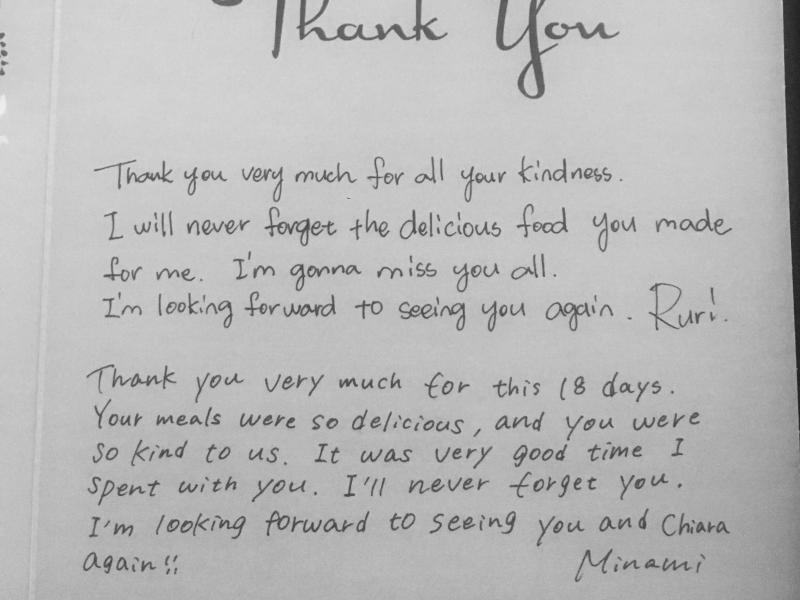 Thank You
Thank you very much for all your kindness.
I will never forget the delicious food you made
for me. I'm gonna miss you all.
I'm looking forward to seeing you again. Ruri.
Thank you very much for this 18 days.
Your meals were so delicious, and you were
so kind to us. It was very good time I
spent with you. I'll never forget you.
I'm looking forward to seeing you and Chiara
again!! Minami